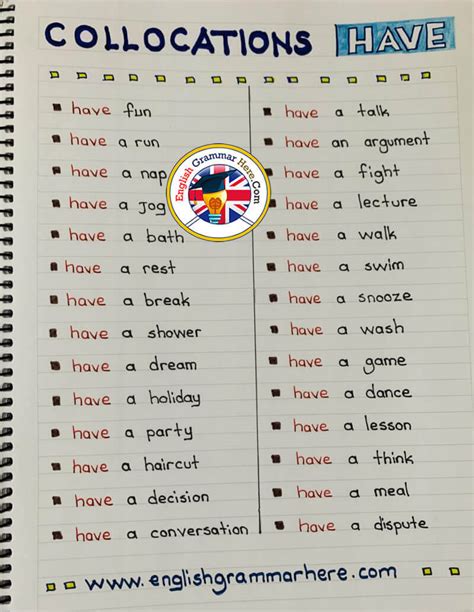 COLLOCATIONS HAVE
have fun
have a run
have a nap
have a jog
have a bath
have a rest
have a break
have a shower
have a dream
have a holiday
have a party
have a haircut
have a decision
have a conversation
have a talk
have an argument
have a fight
have a lecture
have a walk
have a swim
have a snooze
have a wash
have a game
have a dance
have a lesson
have a think
have a meal
have a dispute
English Grammar Here.Com
www.englishgrammarhere.com